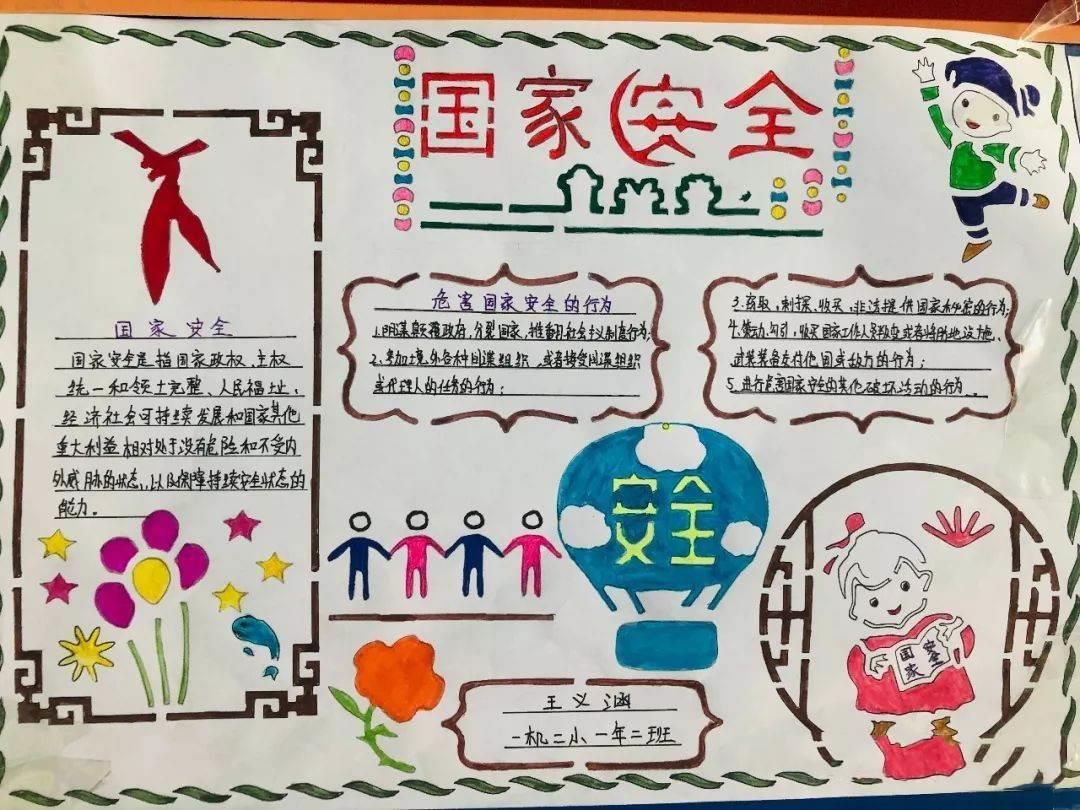 国家安全
国家安全
国家安全是指国家政权、主权
统一和领土完整、人民福址、
经济社会可持续发展和国家其他
重大利益相对处于没有危险和不受内
外威胁的状态,以及保障持续安全状态的
能力。
危害国家安全的行为
1.阴谋颠覆政府,分裂国家,推翻社会主义制度行为;
2、参加境外各种间谍组织,或者接受间谍组织
或代理人的任务的行为;
3.窃取,刺探,收买,非法提供国家秘密的行为;
4.策动,勾引,收买国家工作人员叛变或者将防地设施、
武器装备交付他国或敌方的行为;
5、进行危害国家安全的其他破坏活动的行为。
安全
国家
安全
王义涵
一机二小一年二班